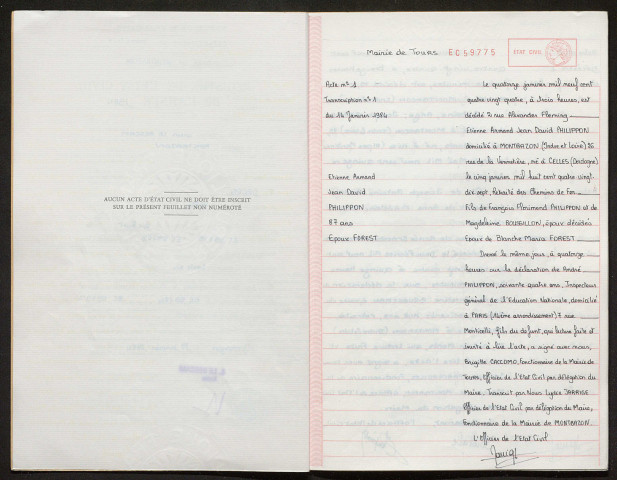 AUCUN ACTE D'ÉTAT CIVIL NE DOIT ÊTRE INSCRIT
SUR LE PRÉSENT FEUILLET NON NUMÉROTÉ
Mairie de Tours EC59775 ETAT CIVIL
Acte n° 1
Transcription n° 1
du 14 Janvier 1984
Etienne Armand
Jean David
PHILIPPON
87 ans
Epoux FOREST
Le quatorze janvier mil neuf cent
quatre vingt quatre, à trois heures, est
décédé 2 rue Alexander Fleming
Etienne Armand Jean David PHILIPPON
domicilié à MONTBAZON (Indre et Loire) 26
rue de la Vennetière, né à CELLES (Dordogne)
le cinq janvier mil huit cent quatre vingt
dix sept, Retraité des Chemins de fer
Fils de François PHILIPPON et de
Magdelaine BOUBILLON, époux décédés
Epoux de Blanche Maria FOREST
Dressé le même jour, à quatorze
heures sur la déclaration de André
PHILIPPON, soixante quatre ans, Inspecteur
général de l'Education Nationale, domicilié
à PARIS (14ème arrondissement) 7 rue
Monticelli, fils du défunt, qui lecture faite et
invité à lire l'acte, a signé avec nous,
Brigitte CACCOMO, fonctionnaire de la Mairie de
Tours, Officier de l'Etat Civil par délégation du
Maire. Transcrit par Nous Lydie JARRIGE
Officier de l'Etat Civil par délégation du Maire,
fonctionnaire de la Mairie de MONTBAZON.
L'Officier de l'Etat Civil